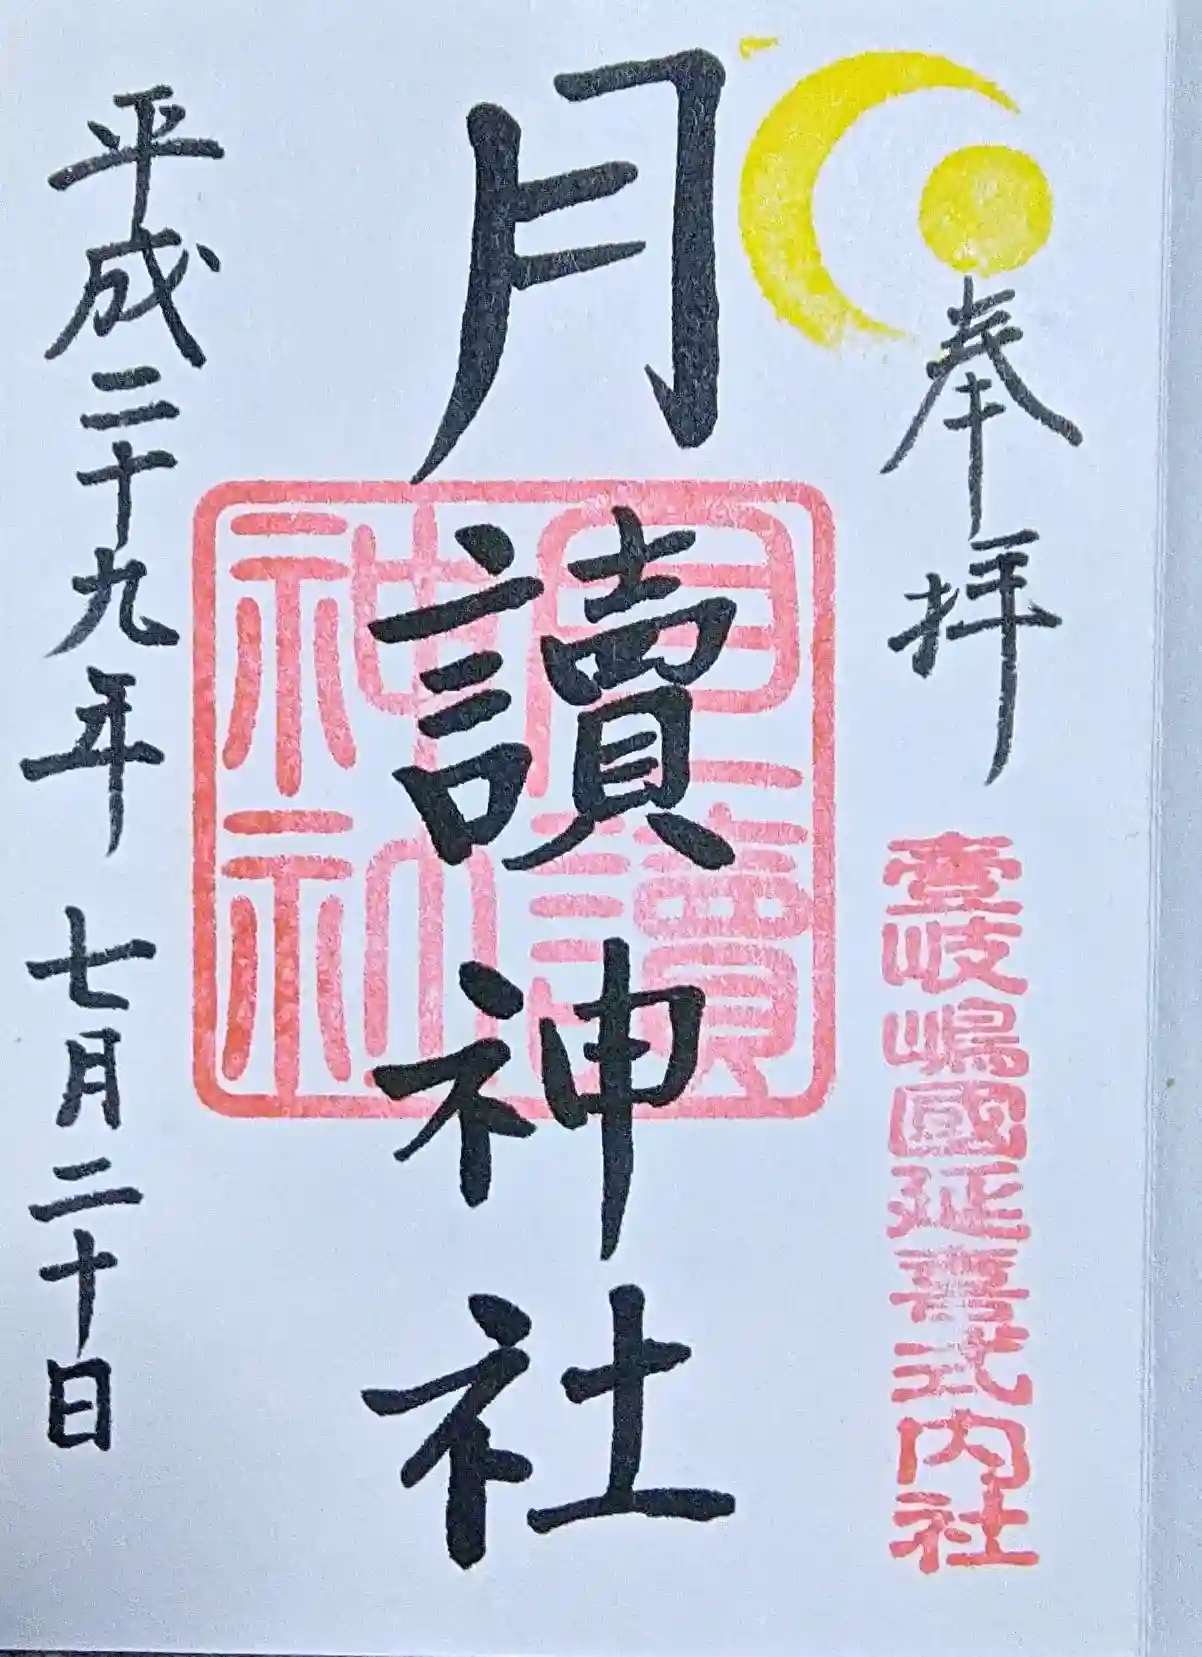 奉拝
壹岐嶋國延喜式内社
月讀神社
月讀
神社
平成二十九年 七月二十日